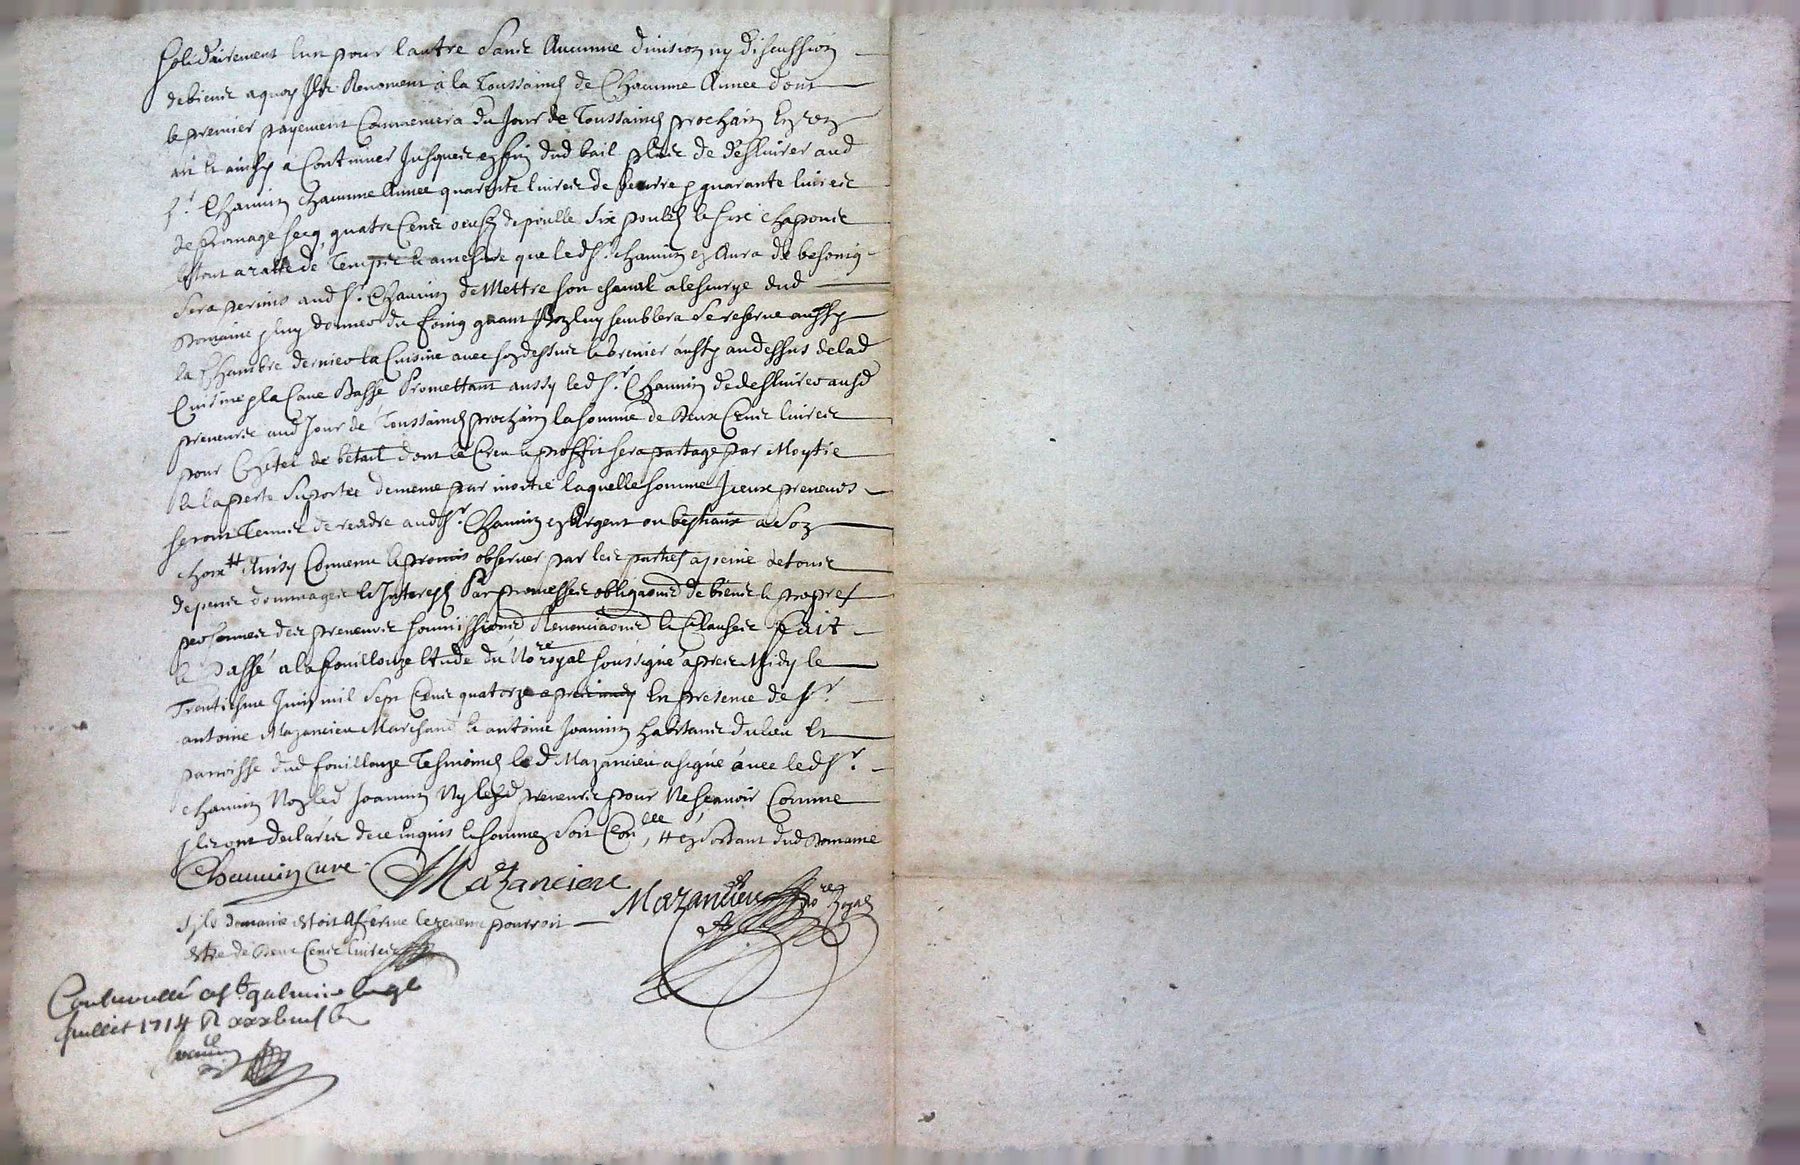 solidairement lun pour lautre sans Aucunne division ny discussion
de biens a quoy Ils Renoncent a la Toussainct de Chacunne Annee dont
le premier payement Commencera du Jour de Toussainct prochain En un
an & ainsy a Continuer Jusques en fin dud bail plus de deslivrer aud
sr. Chauvin Chacunne Annee quarante livres de beurre & quarante livres
de fromage secq, quatre Cens oeufs de poulle six poulets & six chapons
le tout a ratte de Temps & a mesure que led sr. Chauvin en Aura de besoing
sera permis aud sr. Chauvin de Mettre son cheval a lescurye dud
Domaine & luy donner du foing quant bon luy semblera se reserve aussy
la Chambre dernier la Cuisine avec son dessus le Grenier aussy au dessus de lad
Cuisine & la Cave Basse Promettant aussy led sr. Chauvin de deslivrer ausd
preneurs aud Jour de Toussainct prochain la somme de Deux Cens livres
pour Chetel de betail dont le Creu & proffit sera partage par Moytie
& la perte suportee de meme par moitie laquelle somme Iceux preneurs
seront Tenus de rendre aud sr. Chauvin en Argent ou bestiaux a son
choix # Ainsy Convenu & promis observer par les parties a peine de tous
depens dommages & Interests Par promesses obligaons de biens & propres
personnes des preneurs soumissions Renonciaons & Clauses fait
& Passé a la fouillouze Etude du Nore royal soussigné apres Midy le
Trentiesme Juin mil sept Cens quatorze apres midy En presence de sr.
antoine Mazancieu Marchand & antoine Joannin habitans du lieu Et
parroisse dud fouillouze Tesmoings led Mazancieu a signé avec led sr.
Chauvin Non led Joannin Ny lesd preneurs pour Ne scavoir Comme
Ils ont declarés de ce Enquis & sommez soit Conlee, # en sortant dud Domaine
Chauvin cure Mazancieu
Mazancieu nore Royal
sy le domaine estoit Afferme le revenu pourroit
estre de deux Cens livres
Controullé a st galmier le
Juillet 1714 R